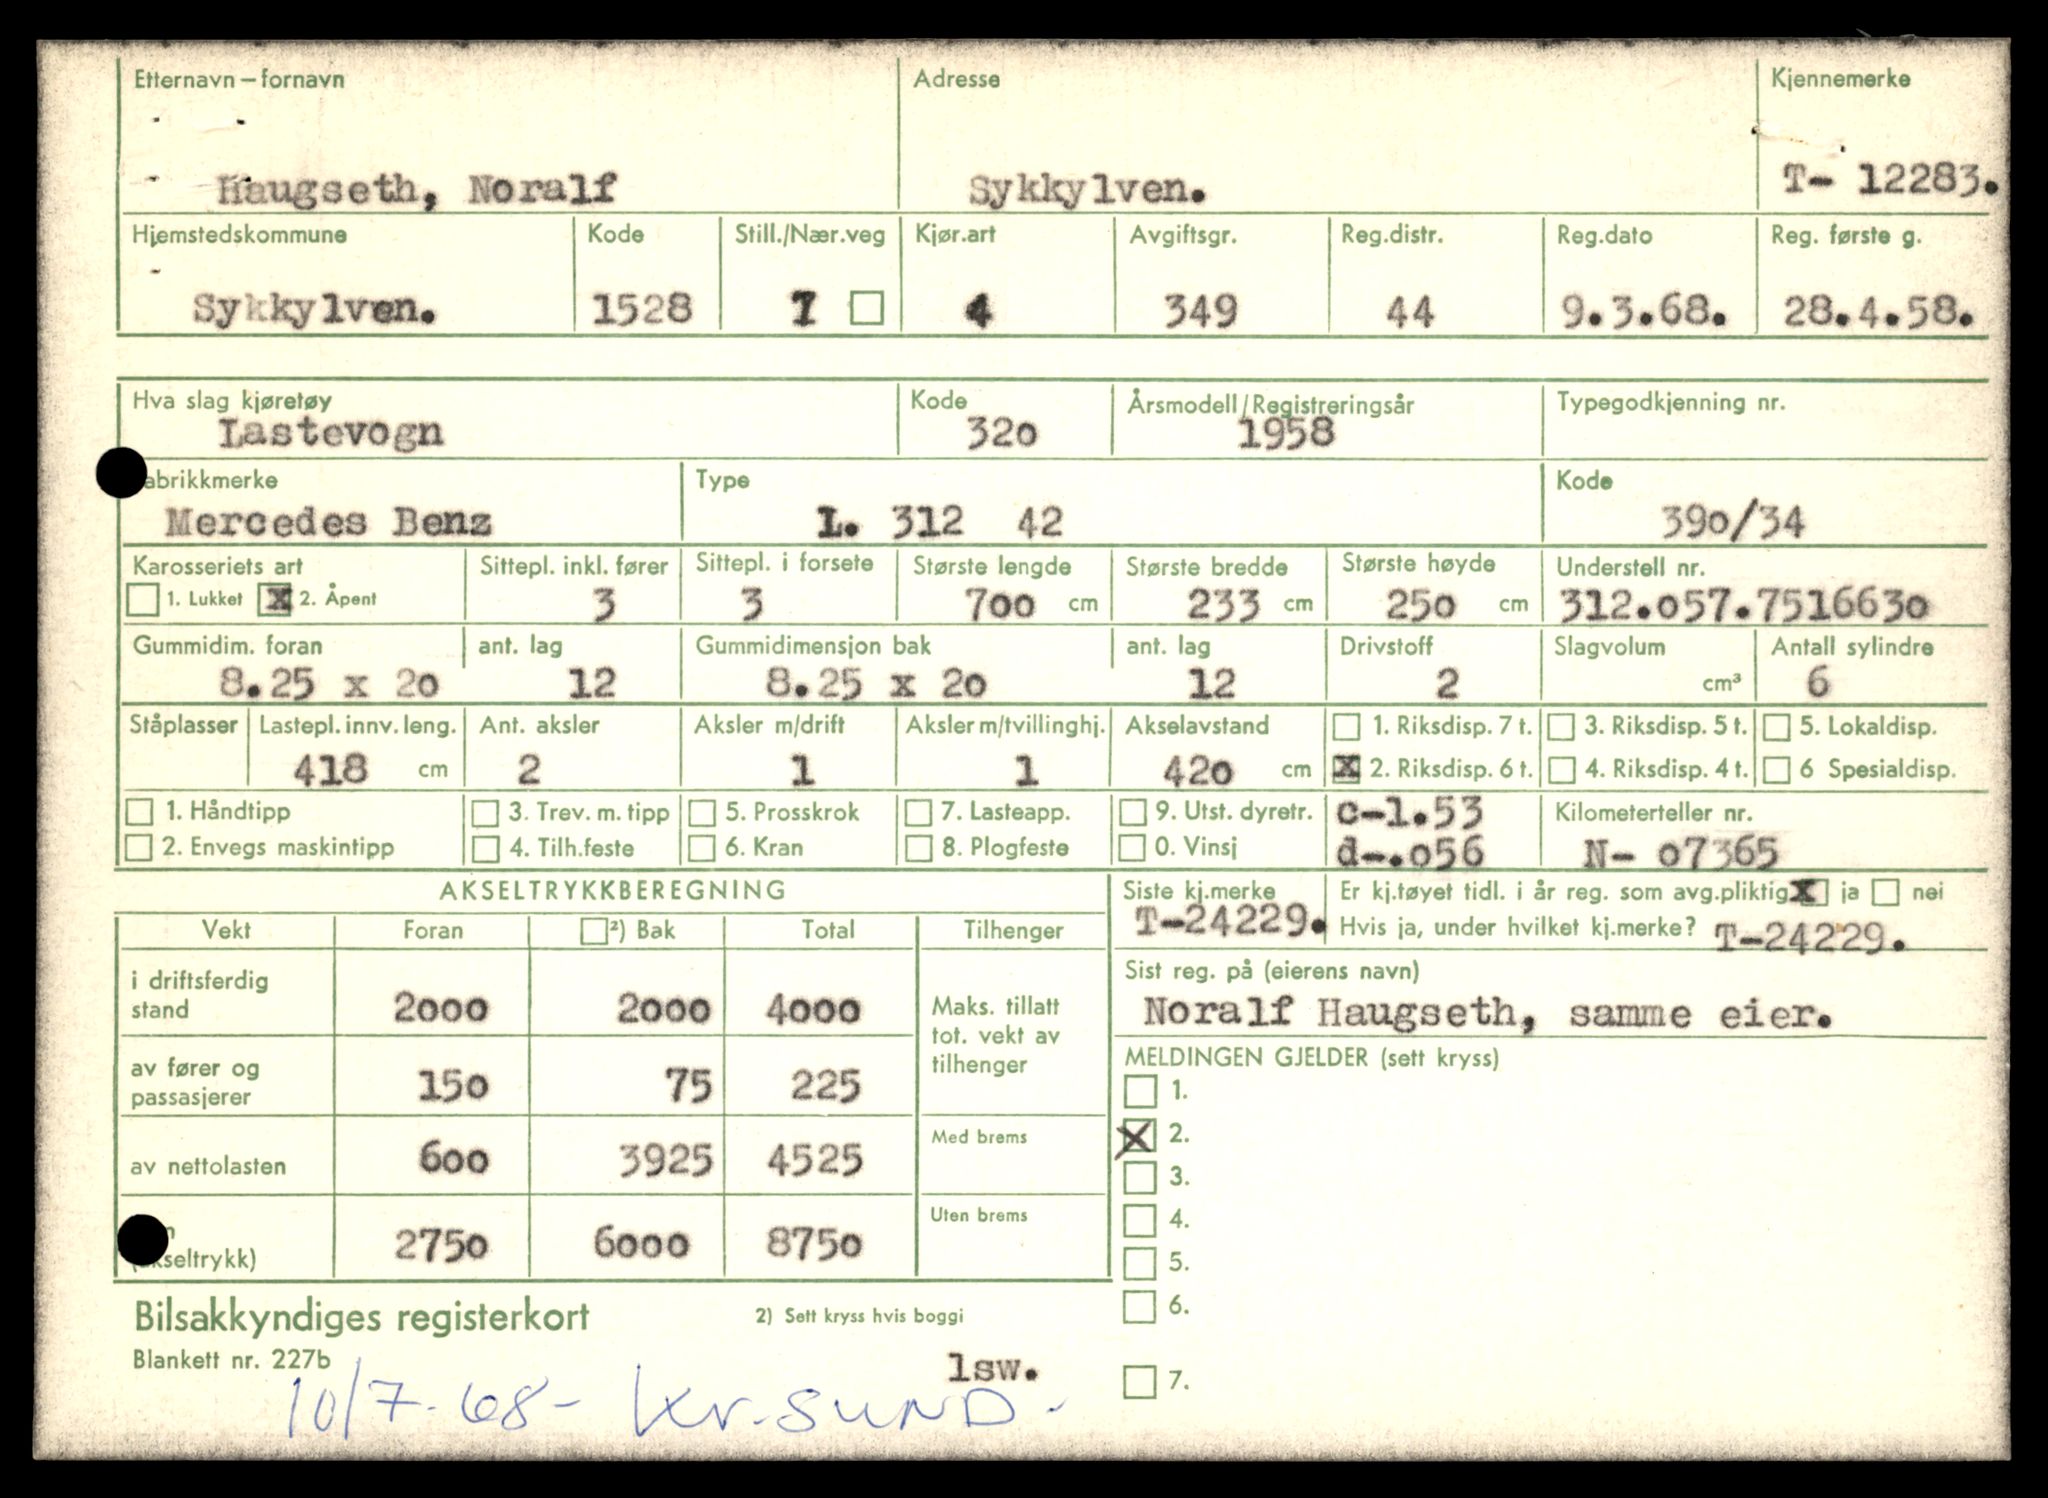 Etternavn – fornavn Adresse Kjennemerke
Haugseth, Noralf Sykkylven. T- 12283.
Hjemstedskommune Kode Still./Nær.veg Kjør.art Avgiftsgr. Reg.distr. Reg.dato Reg. første g.
Sykkylven. 1528 7 4 349 44 9.3.68. 28.4.58.
Hva slag kjøretøy Kode Årsmodell/Registreringsår Typegodkjenning nr.
Lastevogn 320 1958
abrikkmerke Type Kode
Mercedes Benz L. 312 42 390/34
Karosseriets art Sittepl. inkl. fører Sittepl. i forsete Største lengde Største bredde Største høyde Understell nr.
1. Lukket X 2. Åpent 3 3 700 cm 233 cm 250 cm 312.057.7516630
Gummidim. foran ant. lag Gummidimensjon bak ant. lag Drivstoff Slagvolum Antall sylindre
8.25 x 20 12 8.25 x 20 12 2 cm³ 6
Ståplasser Lastepl. innv. leng. Ant. aksler Aksler m/drift Aksler m/tvillinghj. Akselavstand 1. Riksdisp. 7 t. 3. Riksdisp. 5 t. 5. Lokaldisp.
418 cm 2 1 1 420 cm X 2. Riksdisp. 6 t. 4. Riksdisp. 4 t. 6 Spesialdisp.
1. Håndtipp 3. Trev. m. tipp 5. Prosskrok 7. Lasteapp. 9. Utst. dyretr. c-1.53 Kilometerteller nr.
2. Envegs maskintipp 4. Tilh.feste 6. Kran 8. Plogfeste 0. Vinsj d-.056 N- 07365
AKSELTRYKKBEREGNING Siste kj.merke Er kj.tøyet tidl. i år reg. som avg.pliktig X ja nei
T-24229. Hvis ja, under hvilket kj.merke? T-24229.
Vekt Foran ²) Bak Total Tilhenger
Sist reg. på (eierens navn)
Noralf Haugseth, samme eier.
i driftsferdig
stand 2000 2000 4000
Maks. tillatt
tot. vekt av
tilhenger
MELDINGEN GJELDER (sett kryss)
av fører og
passasjerer 150 75 225
1.
X 2.
Med brems
av nettolasten 600 3925 4525
3.
4.
Uten brems
2750 6000 8750
kseltrykk)
5.
6.
Bilsakkyndiges registerkort 2) Sett kryss hvis boggi
Blankett nr. 227b lsw.
7.
10/7-68- Kr.SUND-